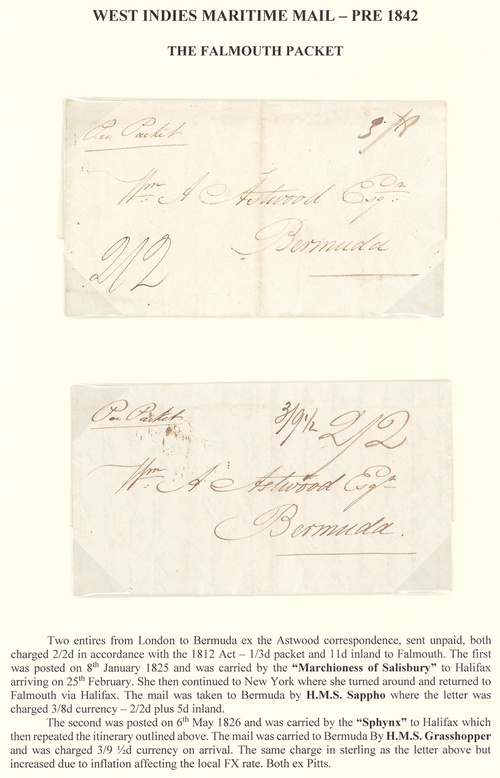 WEST INDIES MARITIME MAIL – PRE 1842
THE FALMOUTH PACKET
Per Packet
3/8
Wm A Astwood Esqr
Bermuda
2/2
Per Packet
3/9 1/2 2/2
Wm A Astwood Esqr
Bermuda.
Two entires from London to Bermuda ex the Astwood correspondence, sent unpaid, both
charged 2/2d in accordance with the 1812 Act – 1/3d packet and 11d inland to Falmouth. The first
was posted on 8th January 1825 and was carried by the “Marchioness of Salisbury” to Halifax
arriving on 25th February. She then continued to New York where she turned around and returned to
Falmouth via Halifax. The mail was taken to Bermuda by H.M.S. Sappho where the letter was
charged 3/8d currency – 2/2d plus 5d inland.
The second was posted on 6th May 1826 and was carried by the “Sphynx” to Halifax which
then repeated the itinerary outlined above. The mail was carried to Bermuda By H.M.S. Grasshopper
and was charged 3/9 ½d currency on arrival. The same charge in sterling as the letter above but
increased due to inflation affecting the local FX rate. Both ex Pitts.